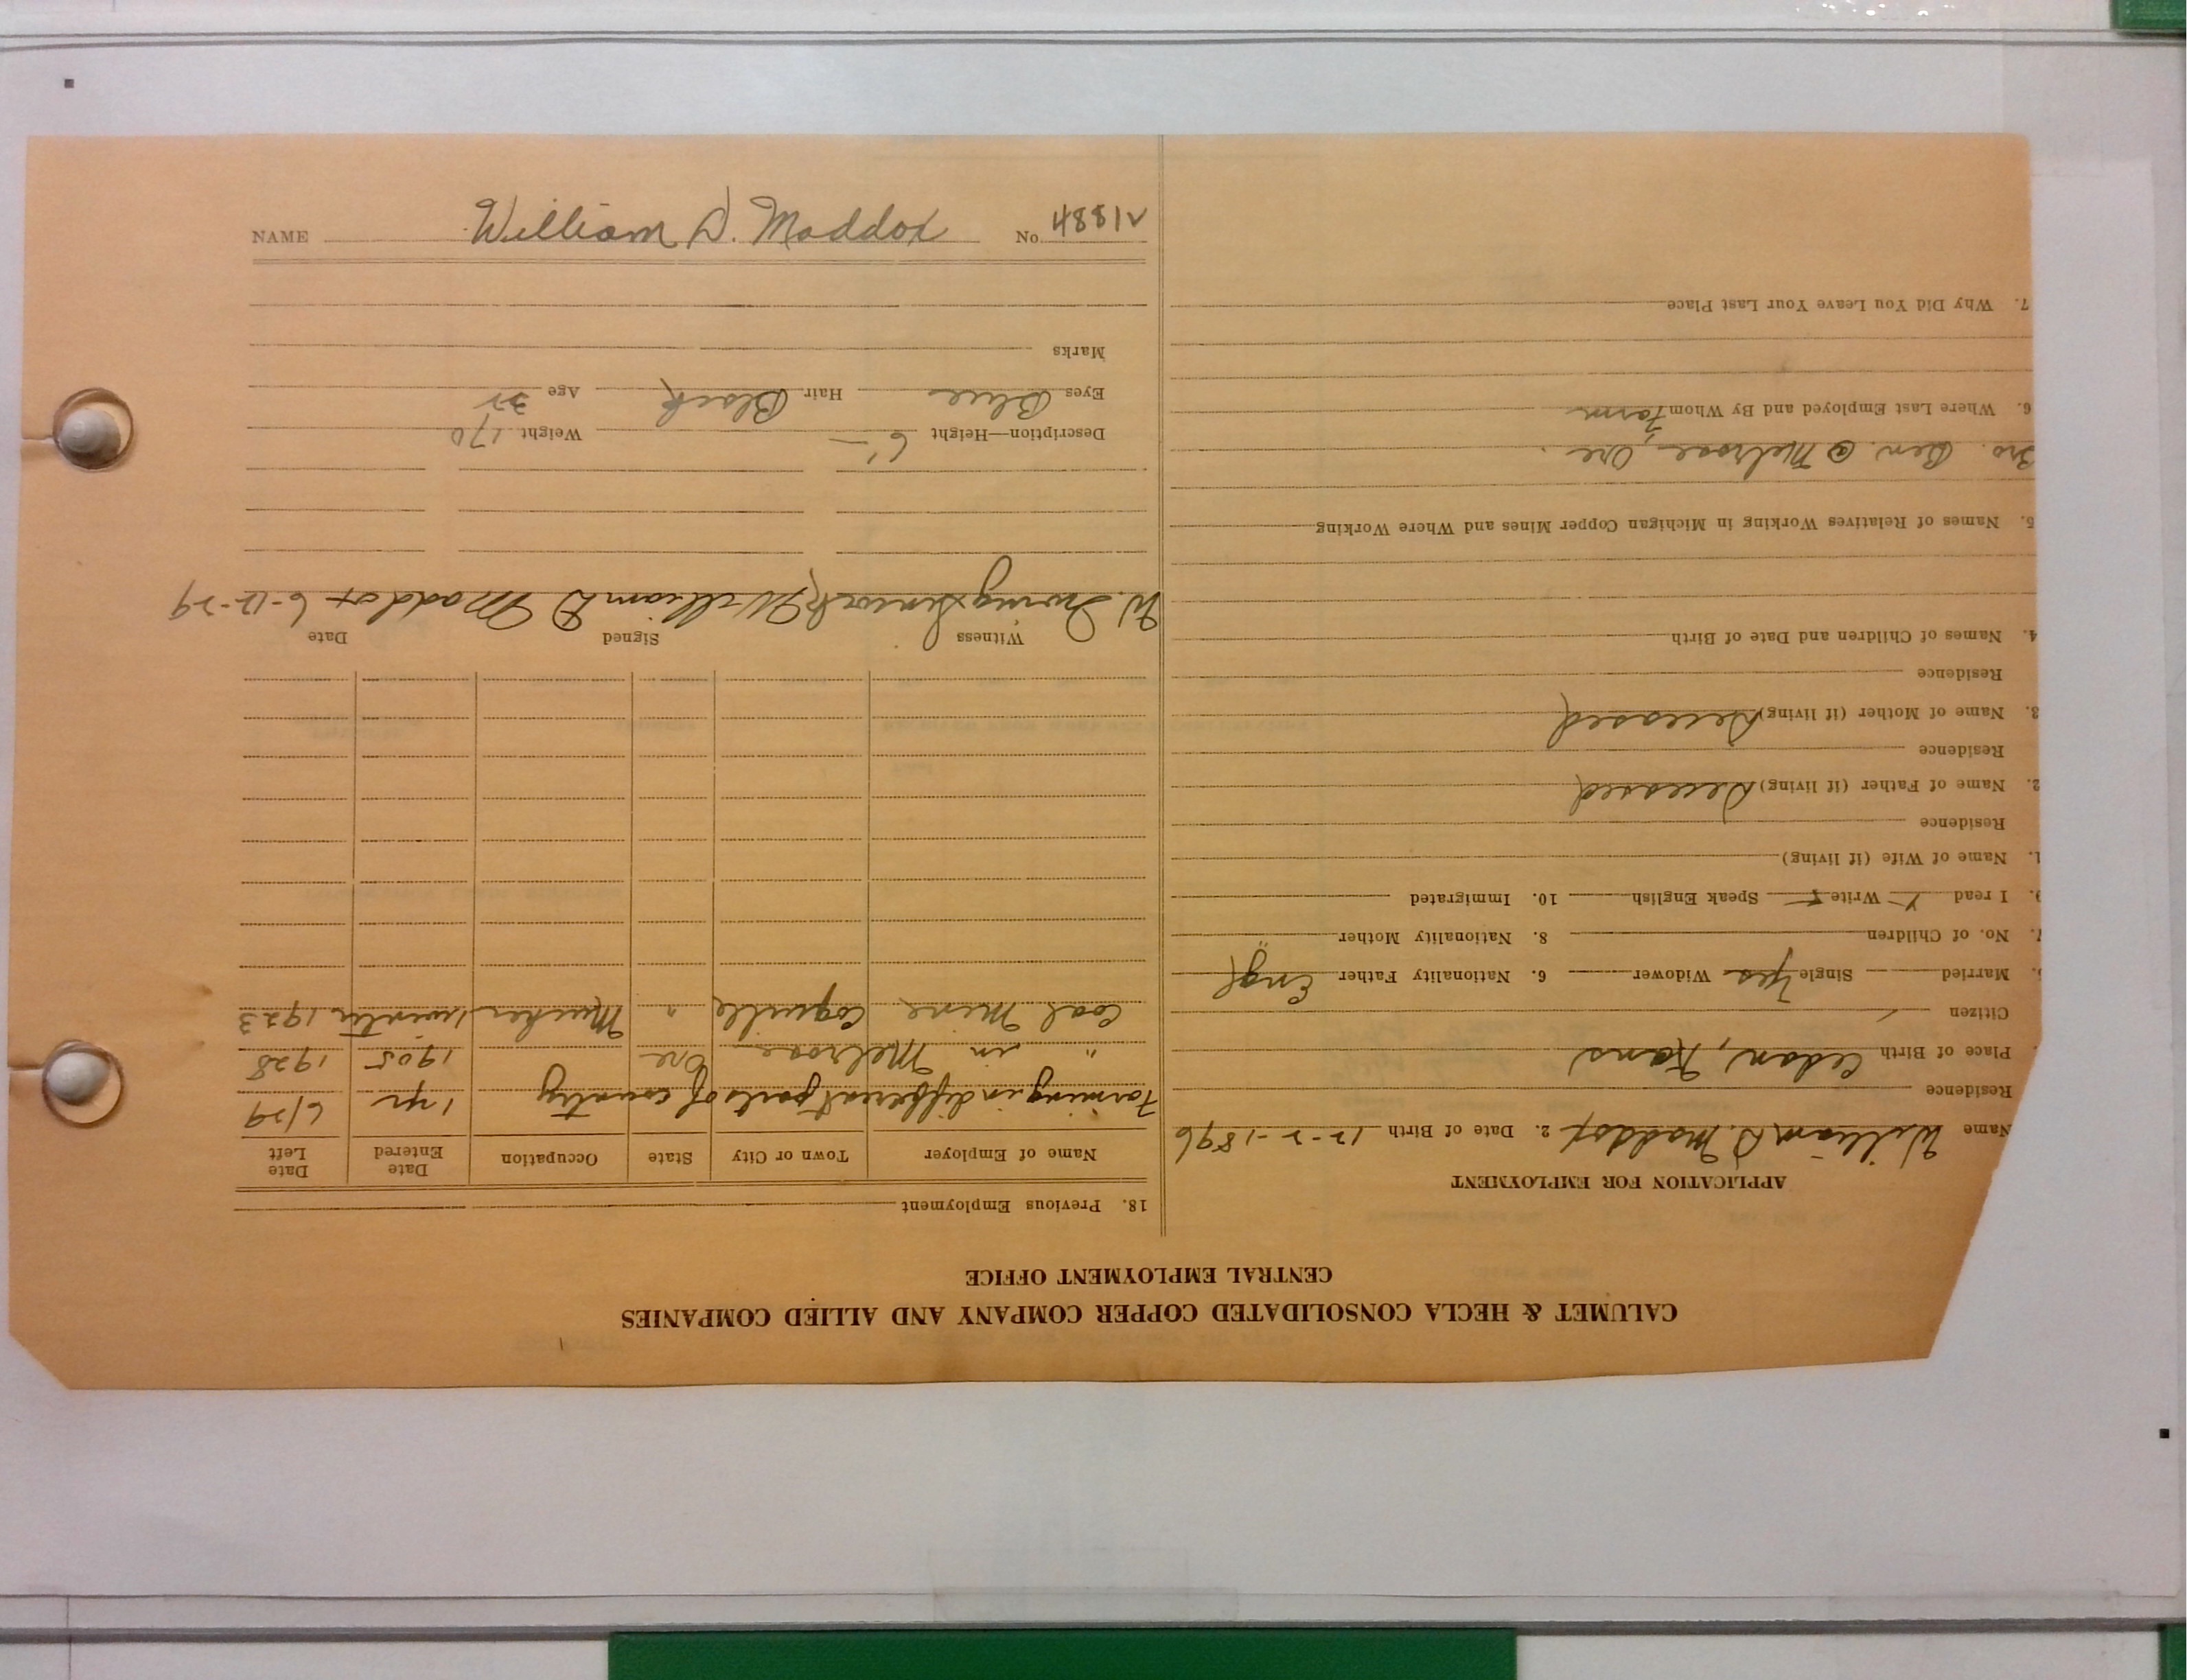 CALUMET & HECLA CONSOLIDATED COPPER COMPANY AND ALLIED COMPANIES
CENTRAL EMPLOYMENT OFFICE
APPLICATION FOR EMPLOYMENT
Name William D. Maddox 2. Date of Birth 12-2-1896
Residence
Place of Birth Cedan, Kans
Citizen
Married Single Yes Widower 6. Nationality Father Engl
7. No. of Children 8. Nationality Mother "
9. I read Write Speak English 10. Immigrated
1. Name of Wife (if living)
Residence
2. Name of Father (if living) Deceased
Residence
3. Name of Mother (if living) Deceased
Residence
4. Names of Children and Date of Birth
5. Names of Relatives Working in Michigan Copper Mines and Where Working
Bro. Ben. @ Melrose, Ore.
6. Where Last Employed and By Whom Farm
7. Why Did You Leave Your Last Place
18. Previous Employment
Name of Employer Town or City State Occupation Date Entered Date Left
Farming in different parts of country 1 yr 6/29
" in Melrose Ore 1905 1928
Coal Mine Coquille " Mucker 1 winter 1923
Witness Signed Date
W. Irving William D Maddox 6-12-29
Description—Height 6' Weight 170
Eyes Blue Hair Black Age 32
Marks
NAME William D. Maddox No 48812